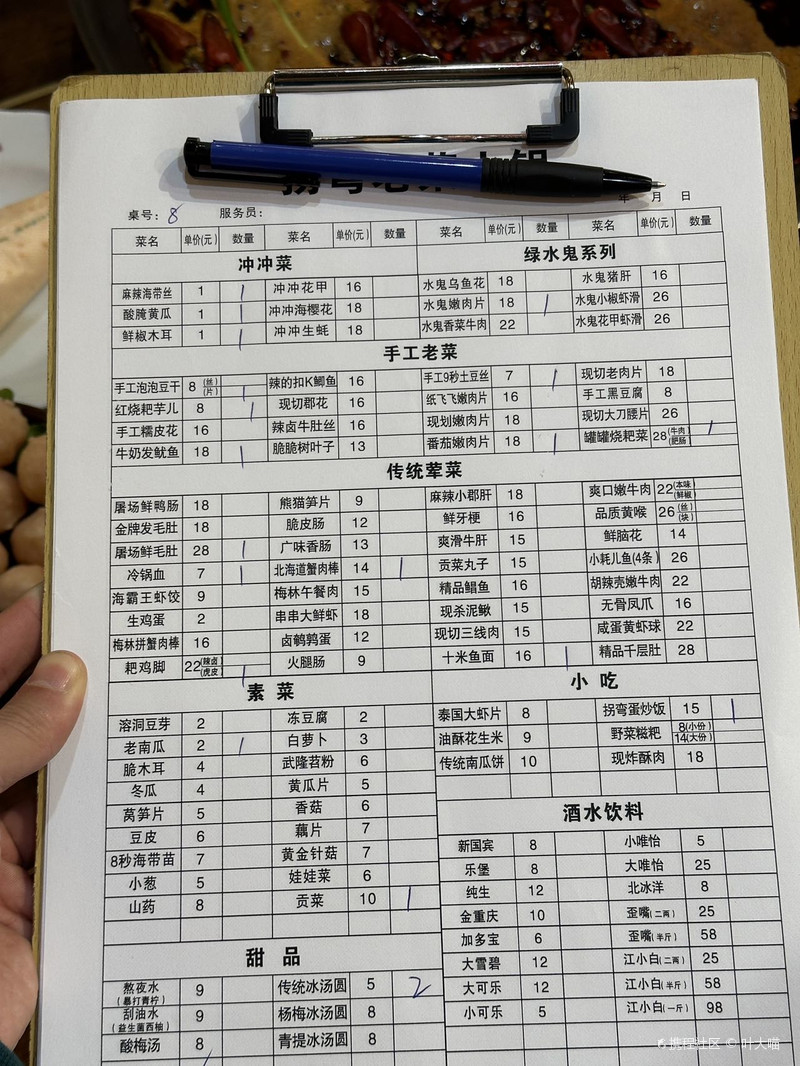 年 月 日
桌号: 8 服务员:
菜名 单价(元) 数量 菜名 单价(元) 数量 菜名 单价(元) 数量 菜名 单价(元) 数量
冲冲菜 绿水鬼系列
麻辣海带丝 1 | 冲冲花甲 16 水鬼乌鱼花 18 水鬼猪肝 16
酸腌黄瓜 1 | 冲冲海樱花 18 水鬼嫩肉片 18 | 水鬼小椒虾滑 26
鲜椒木耳 1 | 冲冲生蚝 18 水鬼香菜牛肉 22 水鬼花甲虾滑 26
手工老菜
手工泡泡豆干 8 (丝) (片) | 辣的扣K鲫鱼 16 手工9秒土豆丝 7 | 现切老肉片 18
红烧粑芋儿 8 | 现切郡花 16 纸飞飞嫩肉片 16 手工黑豆腐 8
手工糯皮花 16 辣卤牛肚丝 16 现划嫩肉片 18 现切大刀腰片 26
牛奶发鱿鱼 18 | 脆脆树叶子 13 番茄嫩肉片 18 | 罐罐烧粑菜 28 (牛肉) (肥肠) |
传统荤菜
屠场鲜鸭肠 18 熊猫笋片 9 麻辣小郡肝 18 爽口嫩牛肉 22 (本味) (鲜椒)
金牌发毛肚 18 脆皮肠 12 鲜牙梗 16 品质黄喉 26 (丝) (块)
屠场鲜毛肚 28 | 广味香肠 13 爽滑牛肝 15 鲜脑花 14
冷锅血 7 | 北海道蟹肉棒 14 | 贡菜丸子 15 小耗儿鱼(4条) 26
海霸王虾饺 9 梅林午餐肉 15 精品鲳鱼 16 胡辣壳嫩牛肉 22
生鸡蛋 2 串串大鲜虾 18 现杀泥鳅 15 无骨凤爪 16
梅林拼蟹肉棒 16 卤鹌鹑蛋 12 现切三线肉 15 咸蛋黄虾球 22
粑鸡脚 22 (辣卤) (虎皮) | 火腿肠 9 十米鱼面 16 | 精品千层肚 28
素菜 小吃
溶洞豆芽 2 冻豆腐 2 泰国大虾片 8 拐弯蛋炒饭 15 |
老南瓜 2 | 白萝卜 3 油酥花生米 9 野菜糍粑 8(小份) 14(大份)
脆木耳 4 武隆苕粉 6 传统南瓜饼 10 现炸酥肉 18
冬瓜 4 黄瓜片 5
莴笋片 5 香菇 6 酒水饮料
豆皮 6 藕片 7 新国宾 8 小唯怡 5
8秒海带苗 7 黄金针菇 7 乐堡 8 大唯怡 25
小葱 5 娃娃菜 6 纯生 12 北冰洋 8
山药 8 贡菜 10 | 金重庆 10 歪嘴(二两) 25
加多宝 6 歪嘴(半斤) 58
甜品 大雪碧 12 江小白(二两) 25
熬夜水 (暴打青柠) 9 传统冰汤圆 5 2 大可乐 12 江小白(半斤) 58
刮油水 (益生菌西柚) 9 杨梅冰汤圆 8 小可乐 5 江小白(一斤) 98
酸梅汤 8 青提冰汤圆 8
携程社区 © 叶大喵